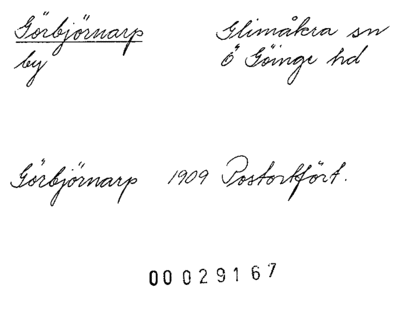 Görbjörnarp Glimåkra sn
by Ö Göinge hd
Görbjörnarp 1909 Postortfört.
00029167